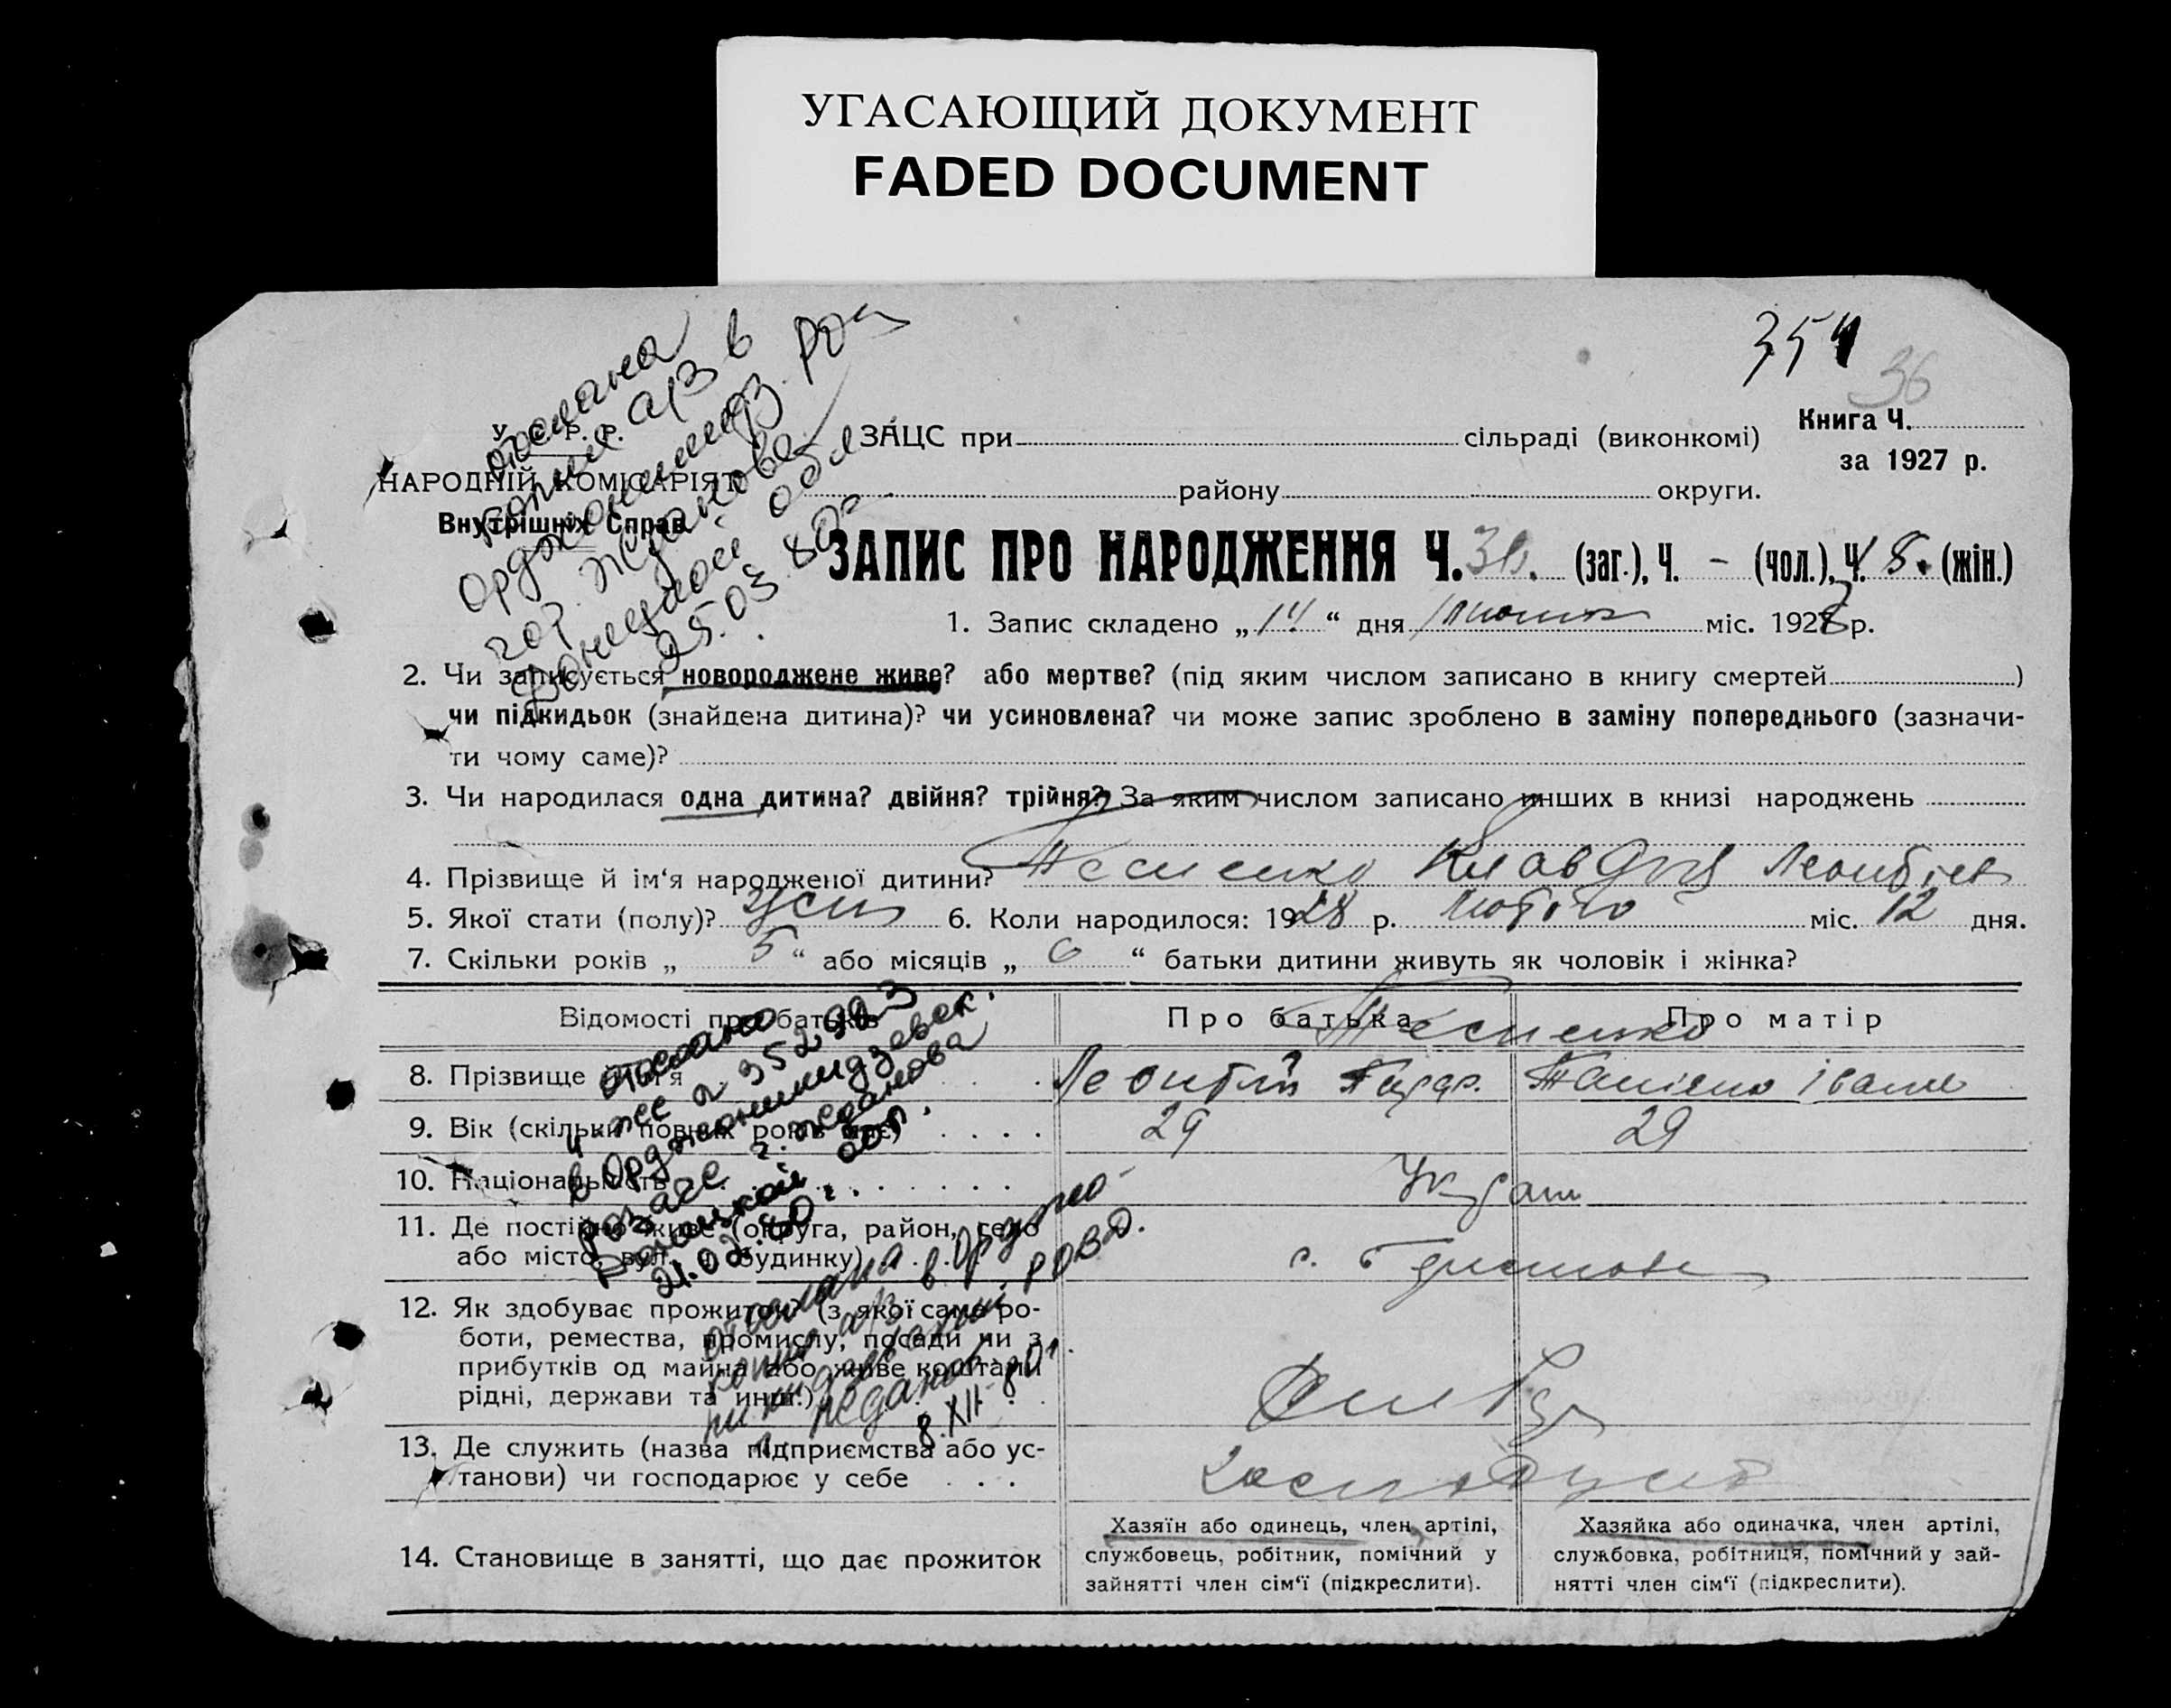 УГАСАЮЩИЙ ДОКУМЕНТ
FADED DOCUMENT
354
36
У. С. Р. Р.
НАРОДНІЙ КОМІСАРІЯТ
Внутрішніх Справ
отослана
копия а/з в
Орджоникидз.
гор. Жданова
Донецкой обл
25.03.80г
ЗАЦС при сільраді (виконкомі)
Книга Ч.
за 1927 р.
району округи.
ЗАПИС ПРО НАРОДЖЕННЯ Ч. 36. (заг.), Ч. – (чол.), Ч. 18. (жін.)
1. Запис складено „14“ дня лютого міс. 1928 р.
2. Чи записується новороджене живе? або мертве? (під яким числом записано в книгу смертей )
чи підкидьок (знайдена дитина)? чи усиновлена? чи може запис зроблено в заміну попереднього (зазначи-
ти чому саме)?
3. Чи народилася одна дитина? двійня? трійня? За яким числом записано инших в книзі народжень
4. Прізвище й ім‘я народженої дитини? Клавдия Леонтіев
5. Якої стати (полу)? жін 6. Коли народилося: 1928 р. лютого міс. 12 дня.
7. Скільки років „ 5 “ або місяців „ 6 “ батьки дитини живуть як чоловік і жінка?
Відомості про батьків Про батька Про матір
8. Прізвище й ім‘я Леонтій Іване
9. Вік (скільки повних років має) 29 29
10. Національність Украін
11. Де постійно живе (округа, район, село
або місто, вул. ч. будинку) с.
12. Як здобуває прожиток? (з якої саме ро-
боти, ремества, промислу, посади чи з
прибутків од майна або живе коштами
рідні, держави та инш.)
13. Де служить (назва підприємства або ус-
танови) чи господарює у себе
14. Становище в занятті, що дає прожиток
Хазяїн або одинець, член артілі,
службовець, робітник, помічний у
зайнятті член сім‘ї (підкреслити).
Хазяйка або одиначка, член артілі,
службовка, робітниця, помічний у зай-
нятті член сім‘ї (підкреслити).
отослано
в Орджоникидзевск.
г. Жданова
Донецкой обл.
21.02.80г.
отослана в Орджо-
копия а/з
никидзевский РОВД.
г. Жданов
8.XII-80г.